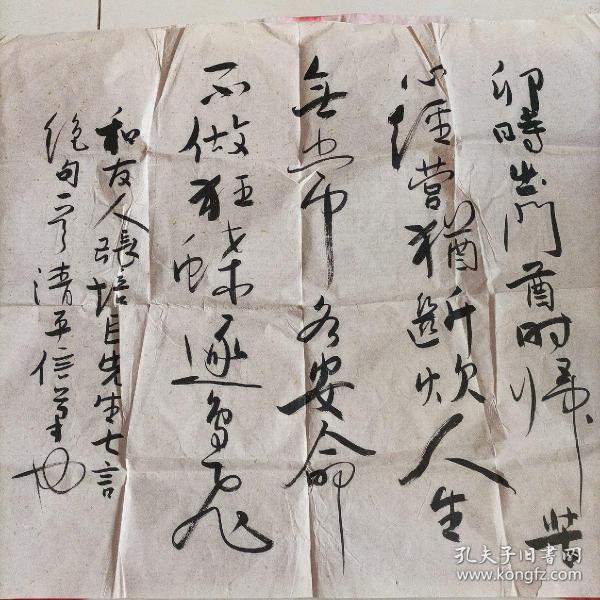 卯時出門酉時归苦
心經營猶断炊人生
無常各安命
不做狂蝶逐鸟飛
和友人張培□先生七言
绝句一首清平信筆也
孔夫子旧书网
www.kongfz.com